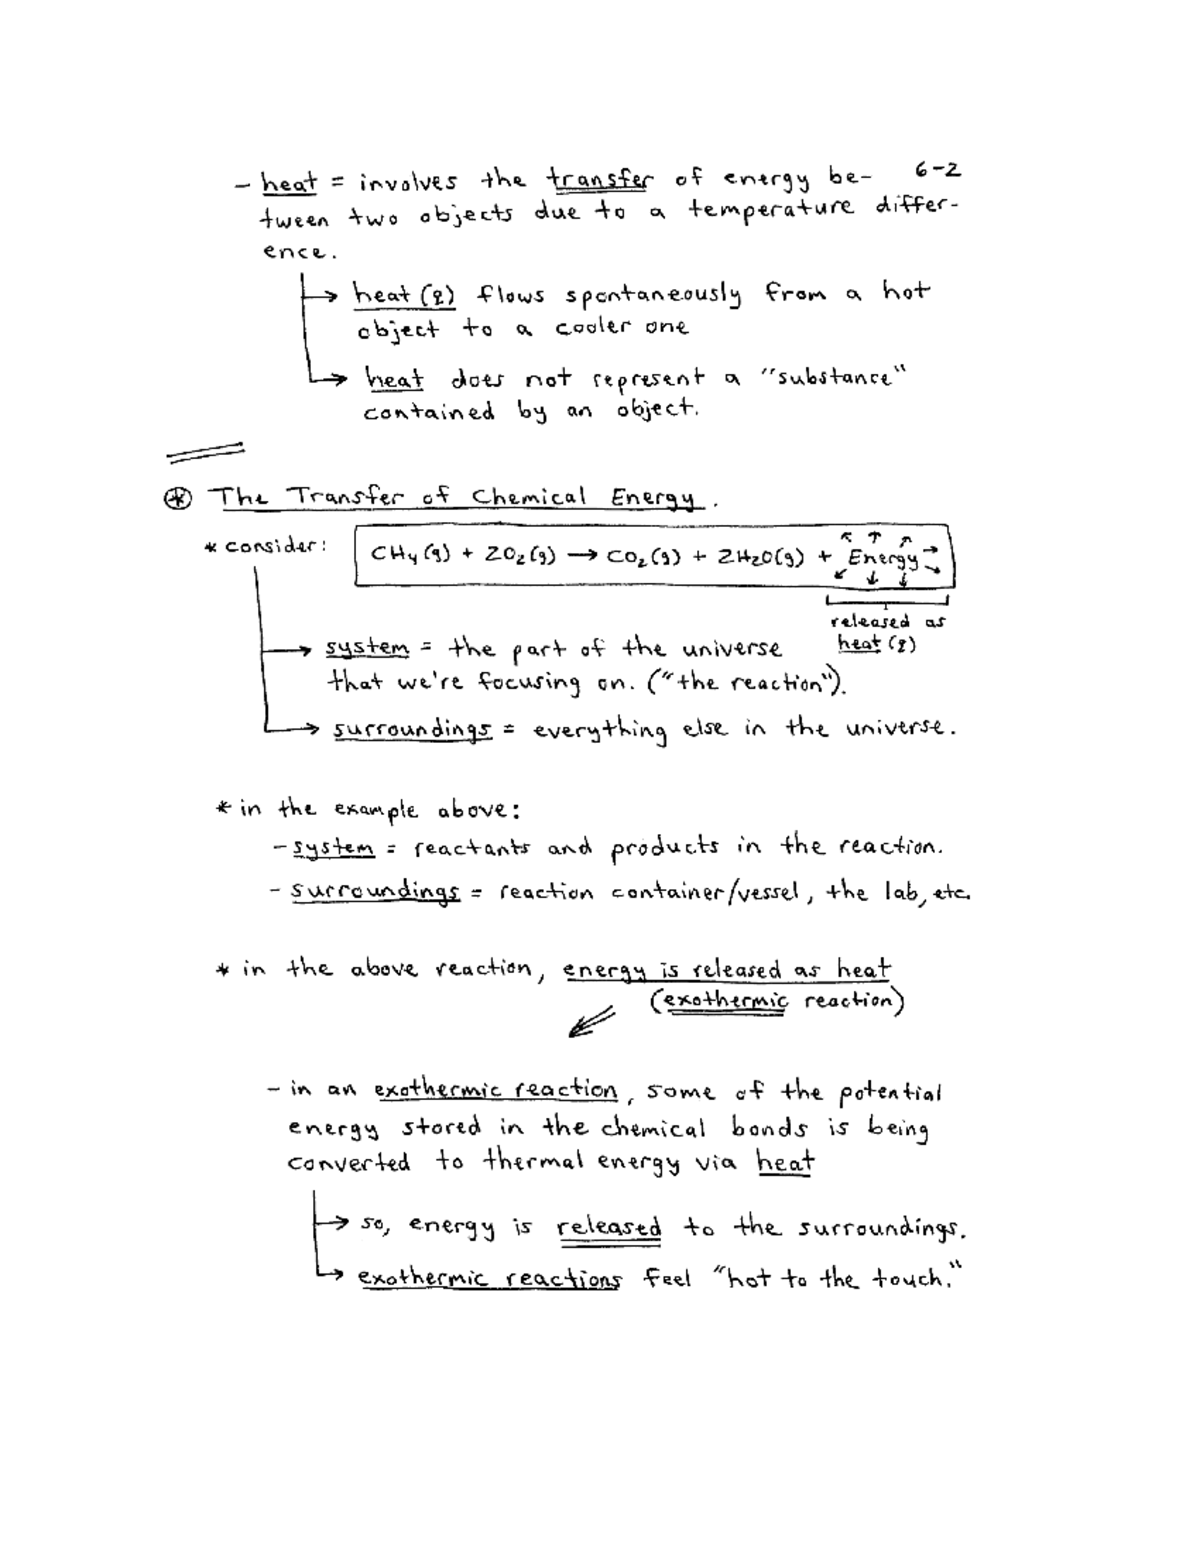 - heat = involves the transfer of energy be- 6-2
tween two objects due to a temperature differ-
ence.
→ heat (q) flows spontaneously from a hot
object to a cooler one
→ heat does not represent a "substance"
contained by an object.
⊛ The Transfer of Chemical Energy.
* consider: CH₄(g) + 2O₂(g) → CO₂(g) + 2H₂O(g) + Energy
released as
heat (q)
→ system = the part of the universe
that we're focusing on. ("the reaction").
→ surroundings = everything else in the universe.
* in the example above:
- system = reactants and products in the reaction.
- surroundings = reaction container/vessel, the lab, etc.
* in the above reaction, energy is released as heat
(exothermic reaction)
- in an exothermic reaction, some of the potential
energy stored in the chemical bonds is being
converted to thermal energy via heat
→ so, energy is released to the surroundings.
→ exothermic reactions feel "hot to the touch."